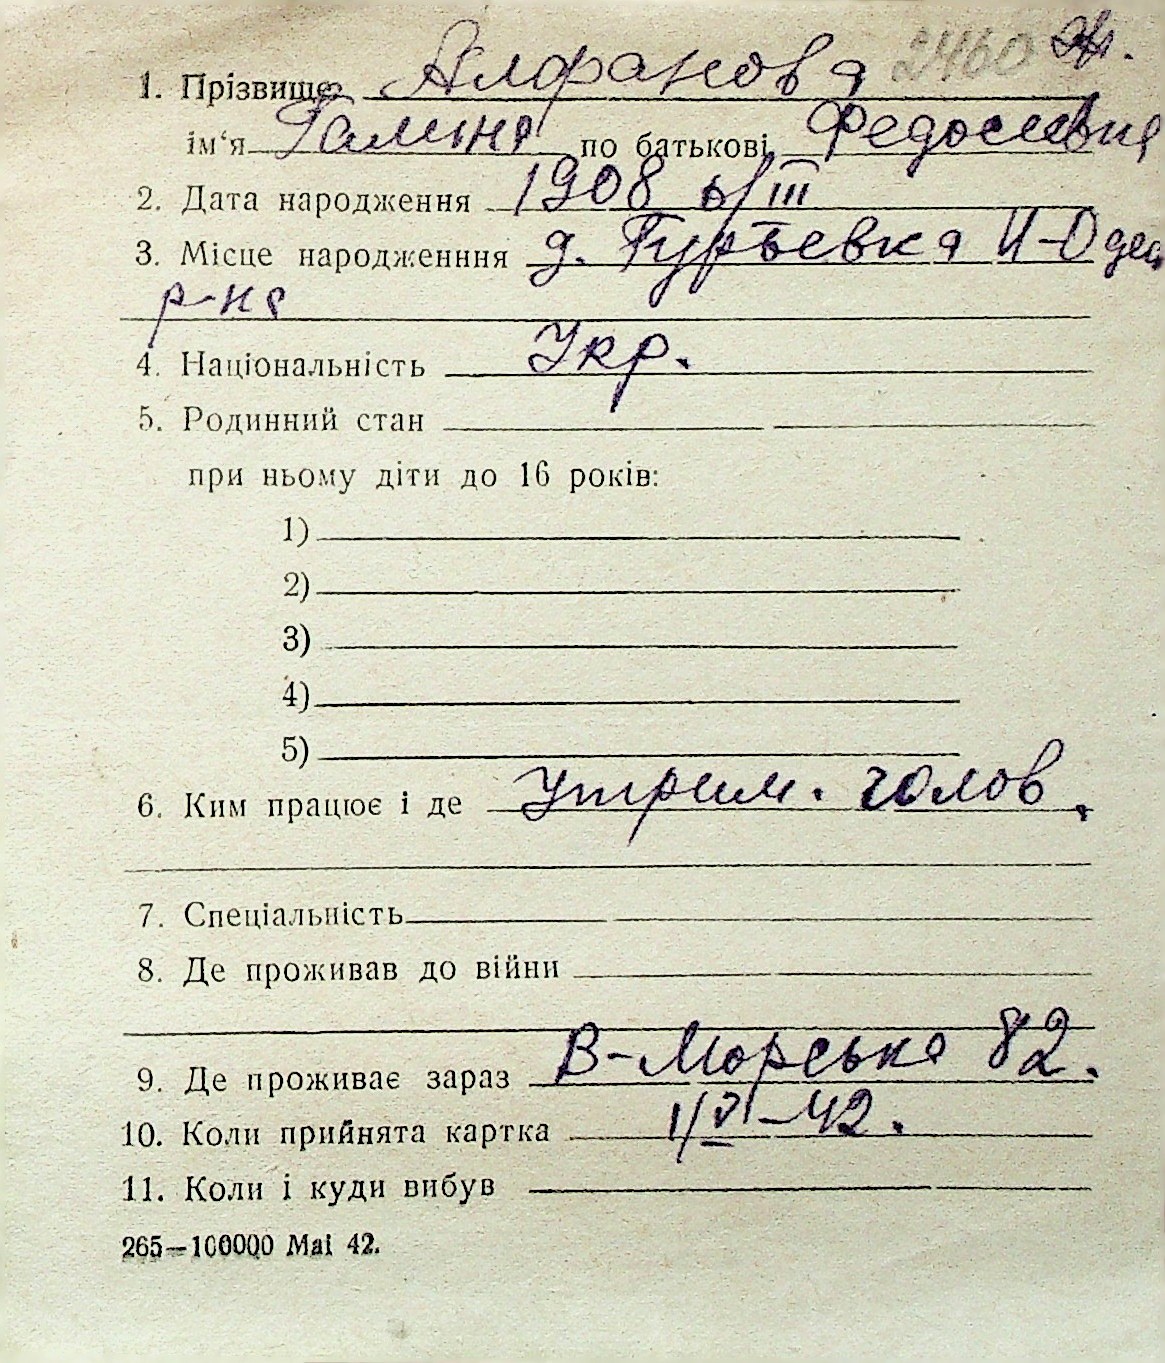 2460 Ж.
1. Прізвище Алфанова
ім‘я Галина по батькові Федосиевна
2. Дата народження 1908 6/III
3. Місце народженння д. Гурьевка Н-Одес.
р-на
4. Національність Укр.
5. Родинний стан
при ньому діти до 16 років:
1)
2)
3)
4)
5)
6. Ким працює і де Утрим. чолов.
7. Спеціальність
8. Де проживав до війни
9. Де проживає зараз В-Морська 82.
10. Коли прийнята картка 1/VI-42.
11. Коли і куди вибув
265—100000 Mai 42.